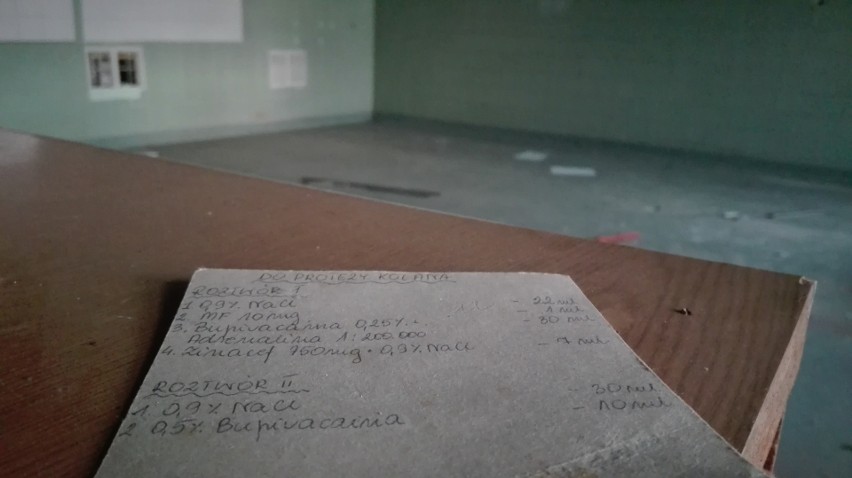 DO PROTEZY KOLANA
ROZTWÓR I
1. 0,9% NaCl - 22 ml
2. MF 10mg - 1 ml
3. Bupivacaina 0,25% + - 30 ml
Adrenalina 1:200.000
4. Zinacef 750mg + 0,9% NaCl - 7 ml
ROZTWÓR II
1. 0,9% NaCl - 30 ml
2. 0,5% Bupivacainia - 10 ml